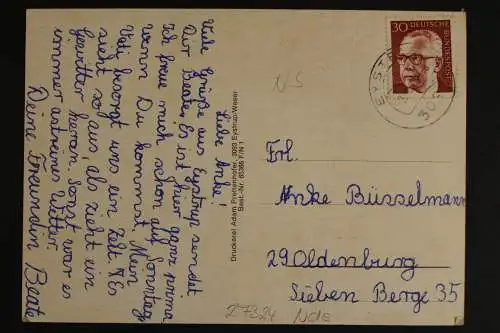 Liebe Anke!
Viele Grüße aus Eystrup sendet
Dir Beate. Es ist hier ganz prima
Ich freue mich schon auf Sonntag
wenn Du kommst. Mein
Vati besorgt uns ein Zelt. Es
sieht so aus, als zieht ein
Gewitter heran. Sonst war es
immer astreines Wetter.
Deine Freundin Beate
Druckerei Adam Prettenhofer, 3093 Eystrup/Weser
Best.-Nr. 65366 F/N 1
30 DEUTSCHE BUNDESPOST
NS
Frl.
Anke Büsselmann
29 Oldenburg
Sieben Berge 35
27324 NdE